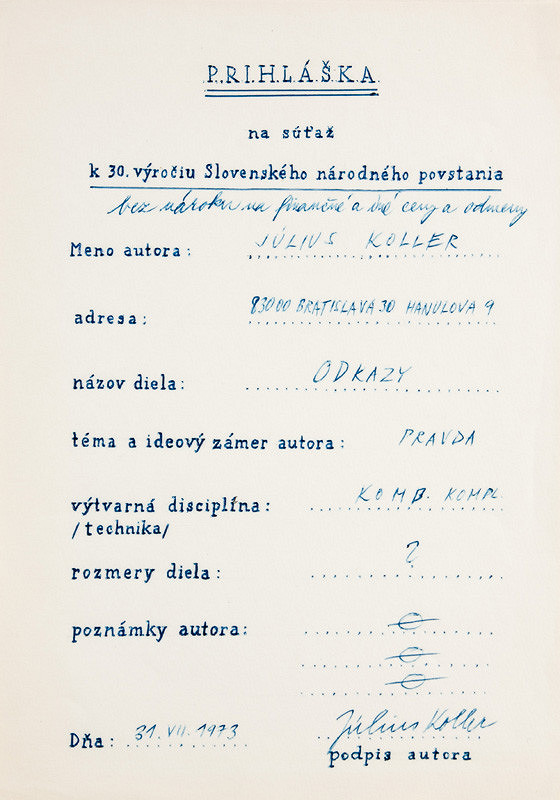 PRIHLÁŠKA
na súťaž
k 30. výročiu Slovenského národného povstania
bez nároku na finančné a iné ceny a odmeny
Meno autora: JÚLIUS KOLLER
adresa: 83000 BRATISLAVA 30 HANULOVA 9
názov diela: ODKAZY
téma a ideový zámer autora: PRAVDA
výtvarná disciplína: KOMB. KOMPL.
/technika/
rozmery diela: ?
poznámky autora:
Dňa: 31. VII. 1973 Július Koller
podpis autora